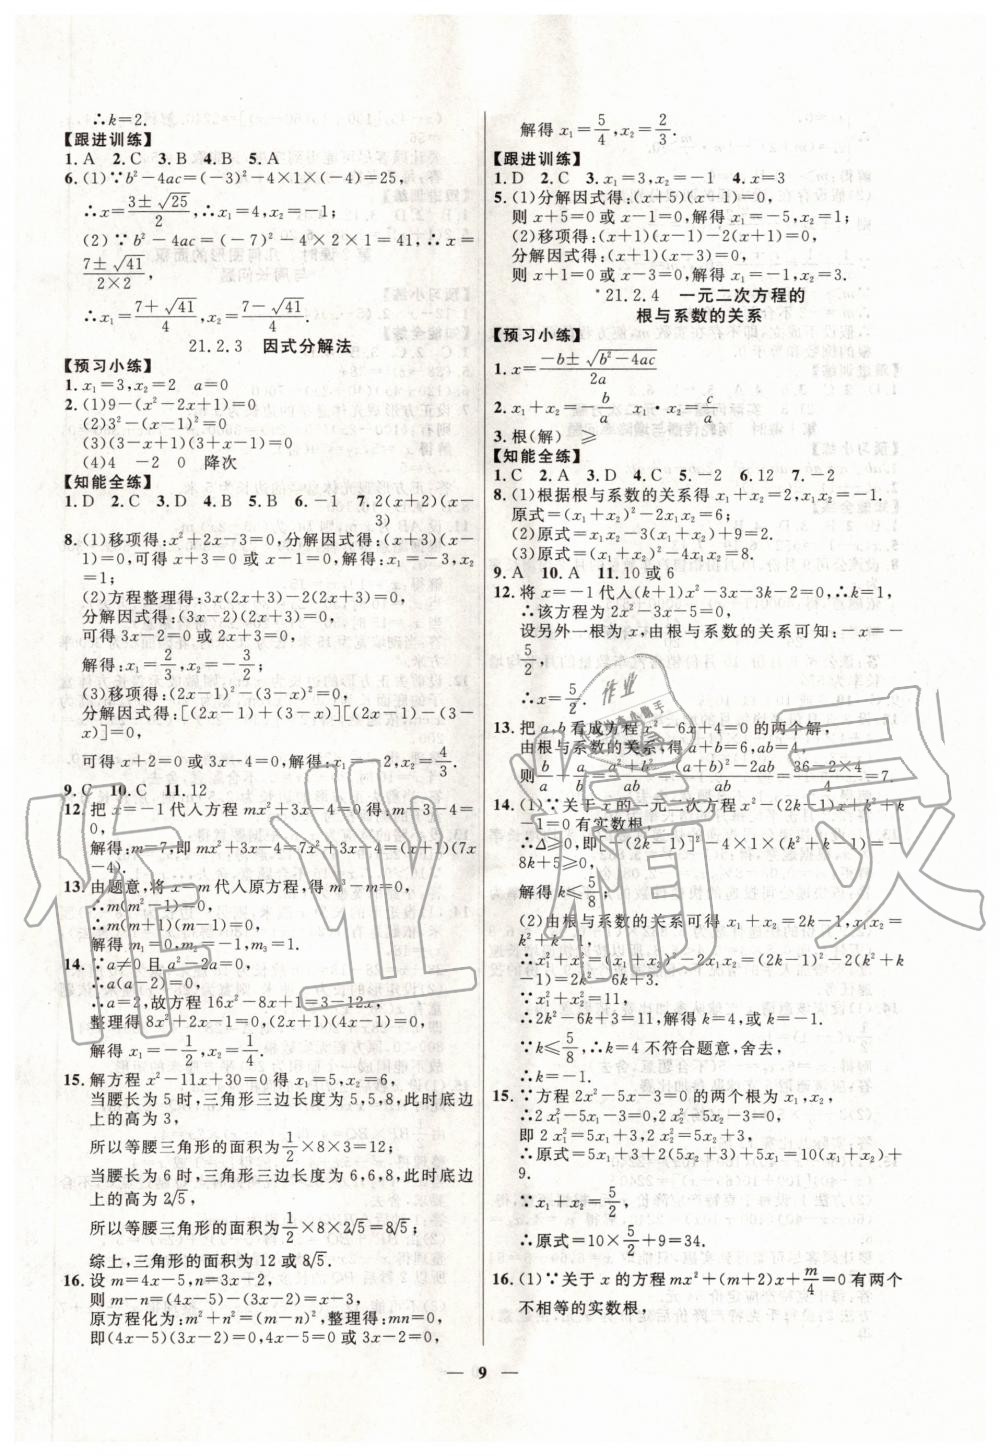 ∴k=2.
【跟进训练】
1. A　2. C　3. B　4. B　5. A
6. (1)∵b²-4ac=(-3)²-4×1×(-4)=25,
∴x=(3±√25)/2, ∴x₁=4, x₂=-1;
(2)∵b²-4ac=(-7)²-4×2×1=41, ∴x=
(7±√41)/(2×2),
∴x₁=(7+√41)/4, x₂=(7-√41)/4.
21.2.3　因式分解法
【预习小练】
1. x₁=3, x₂=2　a=0
2. (1)9-(x²-2x+1)=0
(2)3²-(x-1)=0
(3)(3-x+1)(3+x-1)=0
(4)4　-2　0　降次
【知能全练】
1. D　2. C　3. D　4. B　5. B　6. -1　7. 2(x+2)(x-
3)
8. (1)移项得:x²+2x-3=0,分解因式得:(x+3)(x-
1)=0,可得 x+3=0 或 x-1=0,解得:x₁=-3,
x₂=1;
(2)方程整理得:3x(2x-3)-2(2x+3)=0,
分解因式得:(3x-2)(2x+3)=0,
可得 3x-2=0 或 2x+3=0,
解得:x₁=2/3, x₂=-3/2;
(3)移项得:(2x-1)²-(3-x)²=0,
分解因式得:[(2x-1)+(3-x)][(2x-1)-(3-
x)]=0,
可得 x+2=0 或 3x-4=0,解得:x₁=-2, x₂=4/3.
9. C　10. C　11. 12
12. 把 x=-1 代入方程 mx²+3x-4=0 得:m-3-4=
0,
解得:m=7,即 mx²+3x-4=7x²+3x-4=(x+1)(7x
-4).
13. 由题意,将 x=m 代入原方程,得 m³-m=0,
∴m(m²-1)=0,
∴m(m+1)(m-1)=0,
解得 m₁=0, m₂=-1, m₃=1.
14. ∵a≠0 且 a²-2a=0,
∴a(a-2)=0,
∴a=2,故方程 16x²-8x+1=3-12x,
整理得 8x²+2x-1=0,(2x+1)(4x-1)=0,
解得 x₁=-1/2, x₂=1/4.
15. 解方程 x²-11x+30=0 得 x₁=5, x₂=6,
当腰长为 5 时,三角形三边长度为 5,5,8,此时底边
上的高为 3,
所以等腰三角形的面积为1/2×8×3=12;
当腰长为 6 时,三角形三边长度为 6,6,8,此时底边
上的高为 2√5,
所以等腰三角形的面积为1/2×8×2√5=8√5;
综上,三角形的面积为 12 或 8√5.
16. 设 m=4x-5, n=3x-2,
则 m-n=(4x-5)-(3x-2)=x-3,
原方程化为:m²+n²=(m-n)²,整理得:mn=0,
即(4x-5)(3x-2)=0,∴4x-5=0,3x-2=0,
解得 x₁=5/4, x₂=2/3.
【跟进训练】
1. D　2. C　3. x₁=3, x₂=-1　4. x=3
5. (1)分解因式得:(x+5)(x-1)=0,
则 x+5=0 或 x-1=0,解得 x₁=-5, x₂=1;
(2)移项得:(x+1)(x-1)-2(x+1)=0,
分解因式得:(x+1)(x-3)=0,
则 x+1=0 或 x-3=0,解得 x₁=-1, x₂=3.
*21.2.4　一元二次方程的
根与系数的关系
【预习小练】
1. x=(-b±√(b²-4ac))/2a
2. x₁+x₂=-b/a　x₁·x₂=c/a
3. 根(解)　≥
【知能全练】
1. C　2. A　3. D　4. C　5. -2　6. 12　7. -2
8. (1)根据根与系数的关系得 x₁+x₂=2, x₁x₂=-1.
原式=(x₁+x₂)²-2x₁x₂=6;
(2)原式=x₁x₂-3(x₁+x₂)+9=2;
(3)原式=(x₁+x₂)²-4x₁x₂=8.
9. A　10. A　11. 10 或 6
12. 将 x=-1 代入(k+1)x²-3x-3k-2=0,∴k=1,
∴该方程为 2x²-3x-5=0,
设另外一根为 x,由根与系数的关系可知:-x=-
5/2,
∴x=5/2.
13. 把 a,b 看成方程 x²-6x+4=0 的两个解,
由根与系数的关系,得 a+b=6, ab=4,
则b/a+a/b=(a²+b²)/ab=((a+b)²-2ab)/ab=(36-2×4)/4=7.
14. (1)∵关于 x 的一元二次方程 x²-(2k-1)x+k²+k
-1=0 有实数根,
∴Δ≥0,即[-(2k-1)]²-4×1×(k²+k-1)=-
8k+5≥0,
解得 k≤5/8.
(2)由根与系数的关系可得 x₁+x₂=2k-1, x₁x₂=
k²+k-1,
∴x₁²+x₂²=(x₁+x₂)²-2x₁x₂=(2k-1)²-2(k²+
k-1)=2k²-6k+3.
∵x₁²+x₂²=11,
∴2k²-6k+3=11,解得 k=4,或 k=-1.
∵k≤5/8, ∴k=4 不符合题意,舍去,
∴k=-1.
15. ∵方程 2x²-5x-3=0 的两个根为 x₁,x₂,
∴2x₁²-5x₁-3=0, 2x₂²-5x₂-3=0,
即 2x₁²=5x₁+3, 2x₂²=5x₂+3,
∴原式=5x₁+3+2(5x₂+3)+5x₁=10(x₁+x₂)+
9.
∵x₁+x₂=5/2,
∴原式=10×5/2+9=34.
16. (1)∵关于 x 的方程 mx²+(m+2)x+m/4=0 有两个
不相等的实数根,
— 9 —
作业精灵